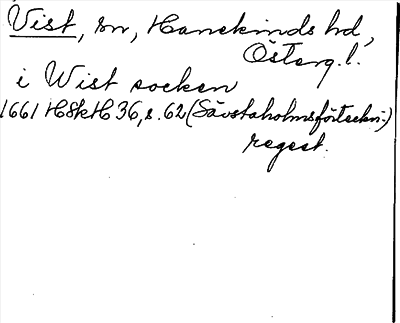 Vist, sn, Hanekinds hd,
Österg.l.
i Wist socken
1661 HSkH 36, s. 62 (Sävstaholmsförteckn:)
regest.